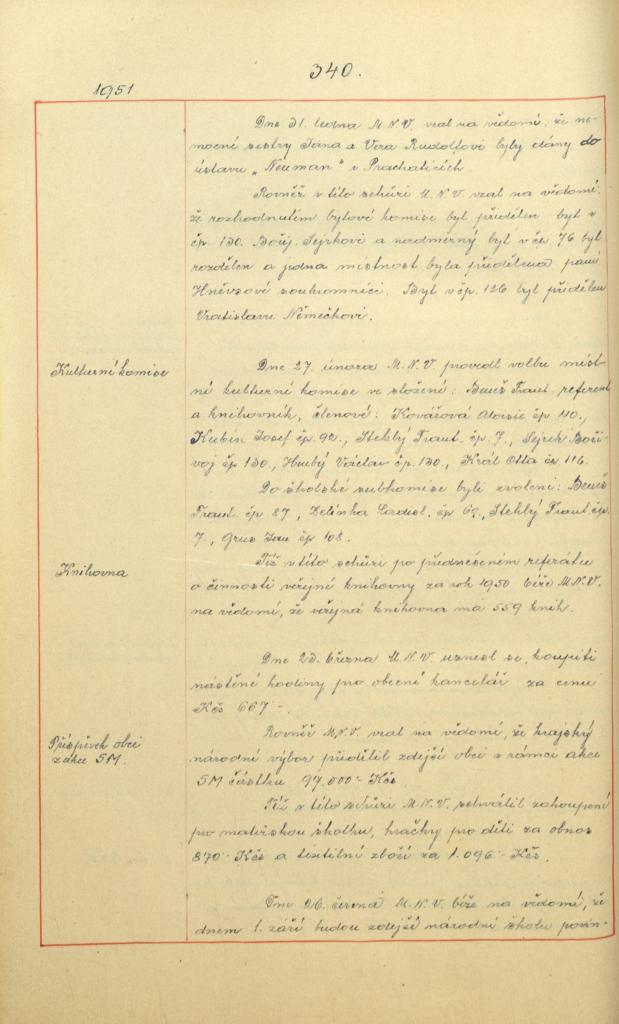 340.
1951
Dne 31. ledna M.N.V. vzal na vědomí, že ne-
mocné sestry Jana a Věra Rudolfovi byly dány do
ústavu „Neuman" v Prachaticích
Rovněž v této schůzi M.N.V. vzal na vědomí,
že rozhodnutím bytové komise byl přidělen byt v
čp. 130. Bořij. Sejrkovi a nadměrný byt v čís 76 byl
rozdělen a jedna místnost byla přidělena paní
Hněvsové soukromnici. Byt v čp. 126 byl přidělen
Vratislavu Němečkovi.
Kulturní komise
Dne 27. února M.N.V. provedl volbu míst
ní kulturní komise ve složení: Beneš Frant. referent
a knihovník, členové: Kovářová Aloisie čp 110.,
Kubín Josef čp. 92., Stehlý Frant. čp. 7., Sejrek Boři-
voj čp 130., Hrubý Václav čp. 130., Král Otta čp 116.
Do školské subkomise byli zvoleni: Beneš
Frant. čp 87, Zelinka Ladisl. čp 62., Stehlý Frant. čp.
7., Grus Jan čp 108.
Knihovna
Též v této schůzi po předneseném referátu
o činnosti veřejné knihovny za rok 1950 bére M.N.V.
na vědomí, že veřejná knihovna má 559 knih.
Dne 23. března M.N.V. usnesl se, koupiti
nástěné hodiny pro obecní kancelář za cenu
Kčs 667 -.
Příspěvek obci
z akce 5M.
Rovněž M.N.V. vzal na vědomí, že krajský
národní výbor přidělil zdejší obci v rámci akce
5M částku 97.000 - Kčs
Též v této schůzi M.N.V. schválil zakoupení
pro mateřskou školku, hračky pro děti za obnos
870 - Kčs a textilní zboží za 1.096 - Kčs.
Dne 26. června M.N.V. béře na vědomí, že
dnem 1. září budou zdejší národní školu povin-